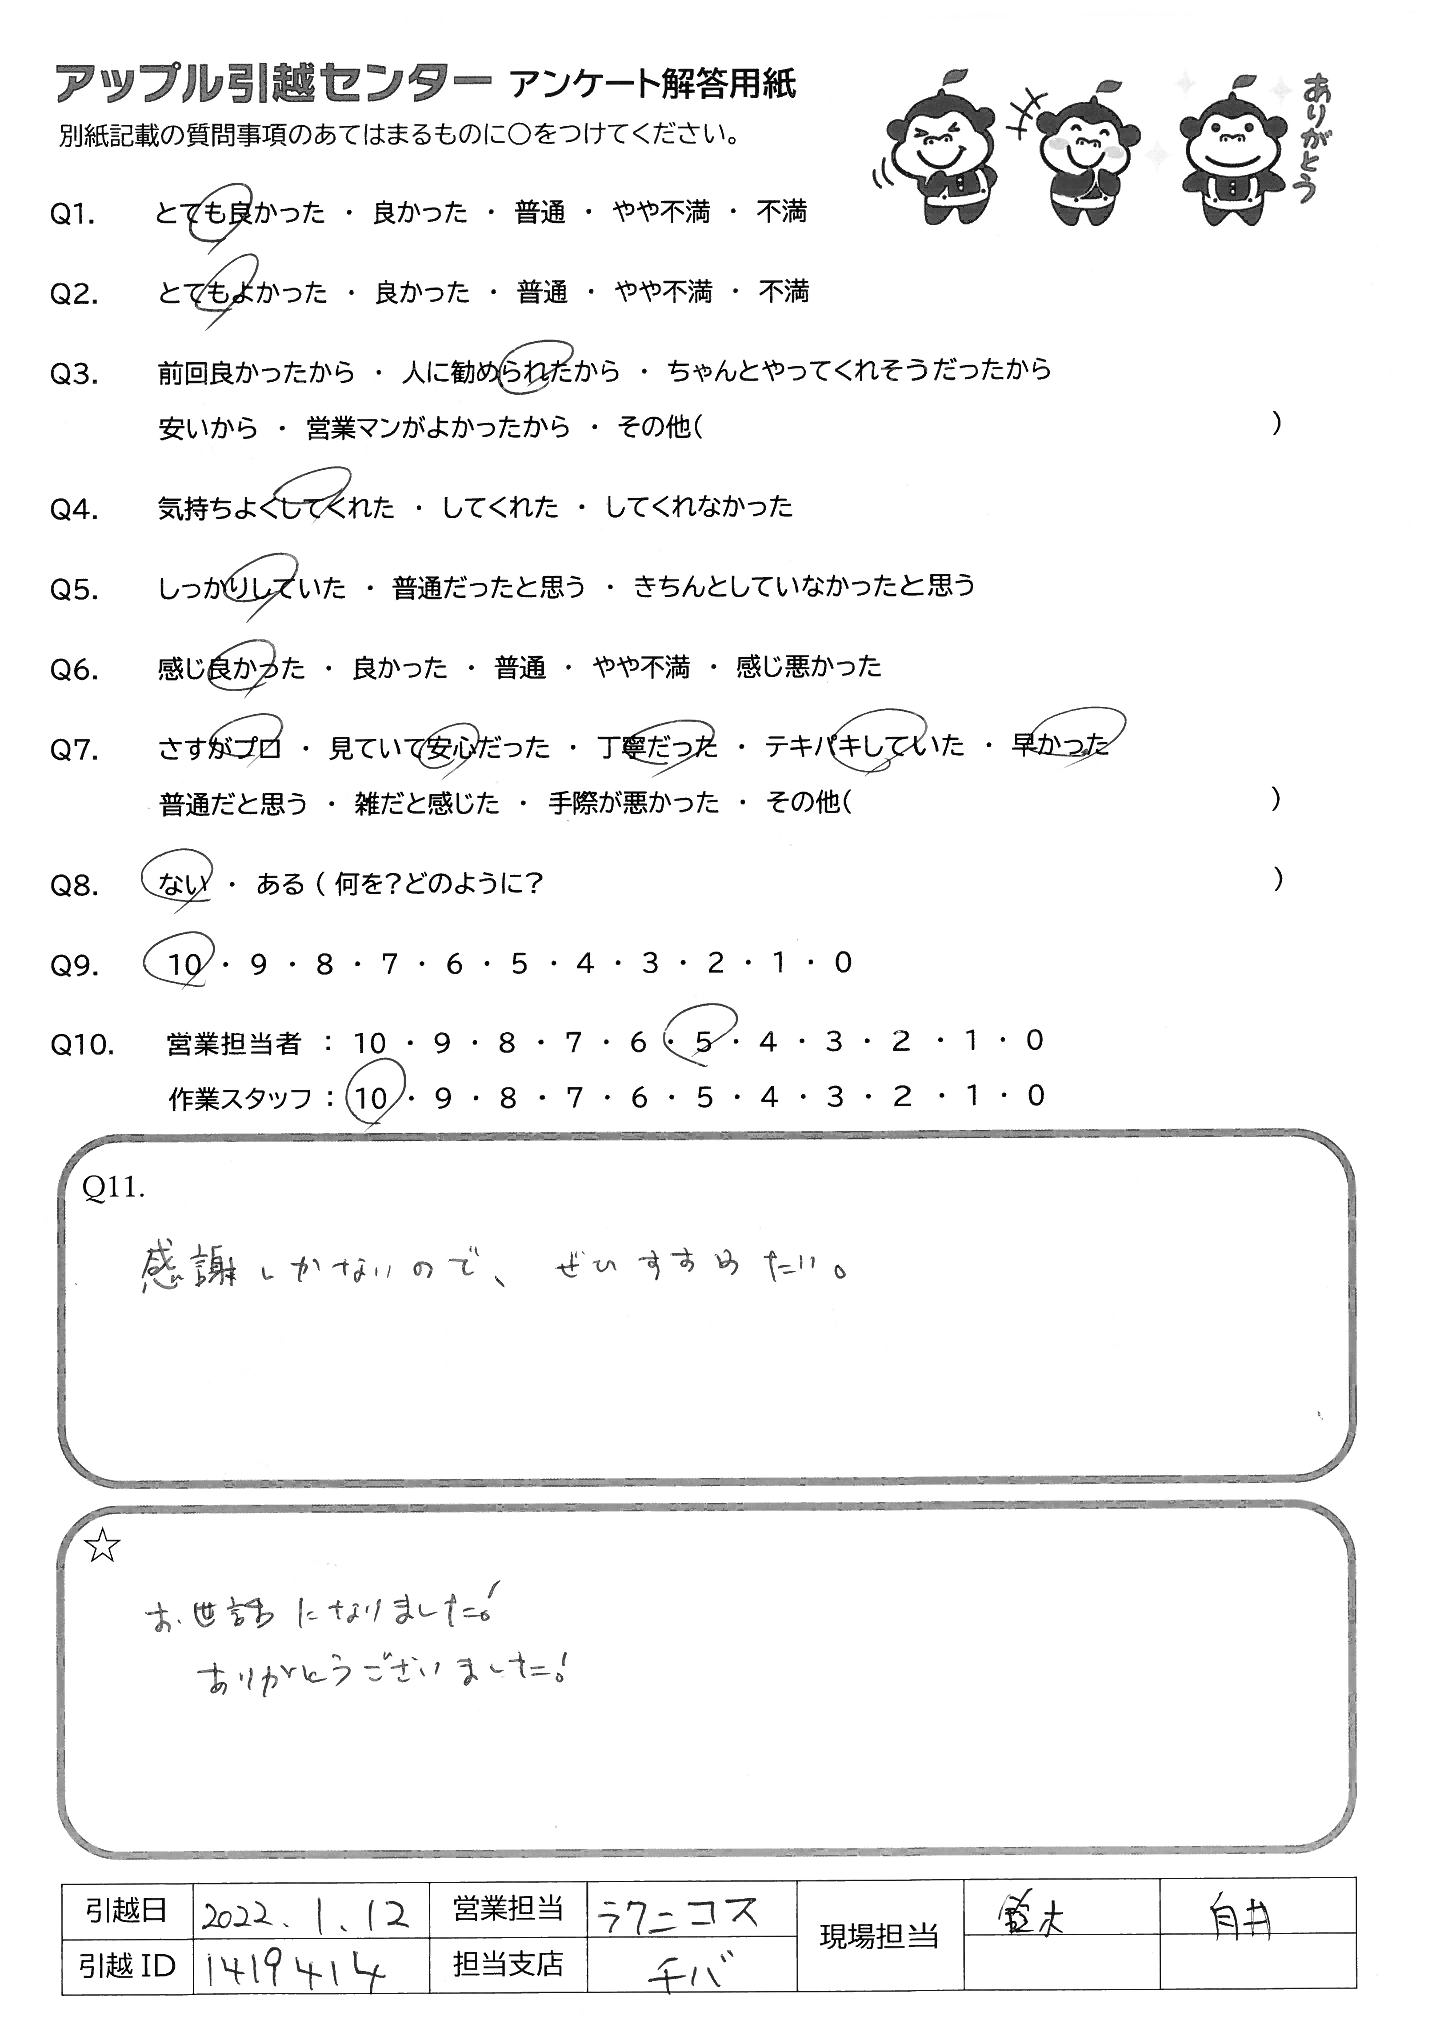 アップル引越センター アンケート解答用紙
ありがとう
別紙記載の質問事項のあてはまるものに○をつけてください。
Q1. とても良かった ・ 良かった ・ 普通 ・ やや不満 ・ 不満
Q2. とてもよかった ・ 良かった ・ 普通 ・ やや不満 ・ 不満
Q3. 前回良かったから ・ 人に勧められたから ・ ちゃんとやってくれそうだったから
安いから ・ 営業マンがよかったから ・ その他( )
Q4. 気持ちよくしてくれた ・ してくれた ・ してくれなかった
Q5. しっかりしていた ・ 普通だったと思う ・ きちんとしていなかったと思う
Q6. 感じ良かった ・ 良かった ・ 普通 ・ やや不満 ・ 感じ悪かった
Q7. さすがプロ ・ 見ていて安心だった ・ 丁寧だった ・ テキパキしていた ・ 早かった
普通だと思う ・ 雑だと感じた ・ 手際が悪かった ・ その他( )
Q8. ない ・ ある ( 何を?どのように? )
Q9. 10 ・ 9 ・ 8 ・ 7 ・ 6 ・ 5 ・ 4 ・ 3 ・ 2 ・ 1 ・ 0
Q10. 営業担当者 : 10 ・ 9 ・ 8 ・ 7 ・ 6 ・ 5 ・ 4 ・ 3 ・ 2 ・ 1 ・ 0
作業スタッフ : 10 ・ 9 ・ 8 ・ 7 ・ 6 ・ 5 ・ 4 ・ 3 ・ 2 ・ 1 ・ 0
Q11.
感謝しかないので、ぜひすすめたい。
☆
お世話になりました!
ありがとうございました!
引越日 2022.1.12 営業担当 ラクニコス 現場担当 鈴木 白井
引越ID 1419414 担当支店 チバ